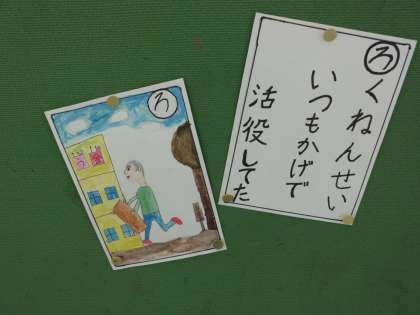 ろくねんせい
いつもかげで
活役してた
ろ